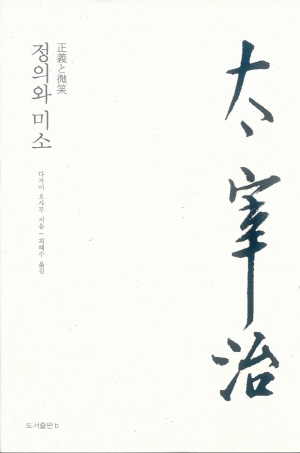 太宰治
正義と微笑
정의와 미소
다자이 오사무 지음ㅣ최혜수 옮김
도서출판 b